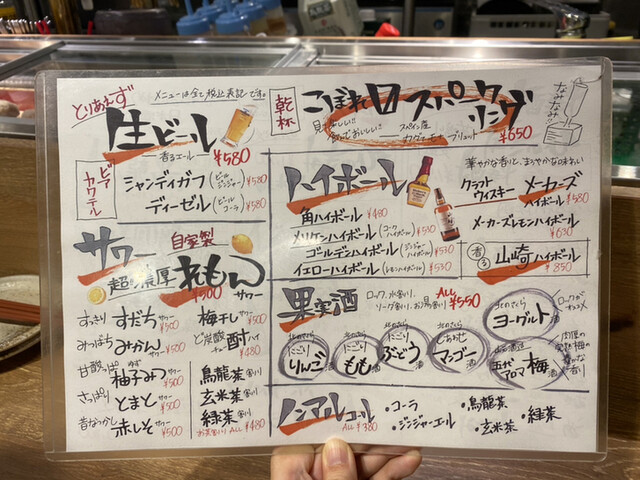 とりあえず
メニューは全て税込表記です。
生ビール
香るエール
¥580
ビアカクテル
シャンディガフ(ビール ジンジャー) ¥580
ディーゼル(ビール コーラ) ¥580
乾杯
こぼれスパークリング
スペイン産
ブリュット
¥650
なみなみ
ハイボール
角ハイボール ¥480
メリケンハイボール(コークハイボール) ¥530
ゴールデンハイボール(ジンジャーハイボール) ¥530
イエローハイボール(レモンハイボール) ¥530
華やかな香りと、まろやかな味わい
クラフトウイスキー メーカーズハイボール ¥580
メーカーズレモンハイボール ¥630
香る 山崎ハイボール ¥850
サワー
自家製
超濃厚 れもんサワー ¥500
すっきり すだちサワー ¥500
みつばち みかんサワー ¥500
甘酸っぱ 柚子みつサワー ¥500
ゆず
さっぱり とまとサワー ¥500
昔なつかし 赤しそサワー ¥500
梅干しサワー ¥500
ど炭酸 酎ハイ ¥480
烏龍茶割り
玄米茶割り
緑茶割り
お茶割り ALL ¥480
果実酒
ロック、水割り、ソーダ割り、お湯割り
ALL ¥550
北のさくら にごりりんご酒
北のさくら にごりもも酒
北のさくら ぶどう酒
しあわせマンゴー酒
北のさくら ヨーグルト酒
ロックがオススメ
五代アロマ梅酒
ノンアルコール
ALL ¥380
・コーラ
・ジンジャーエール
・烏龍茶
・玄米茶
・緑茶